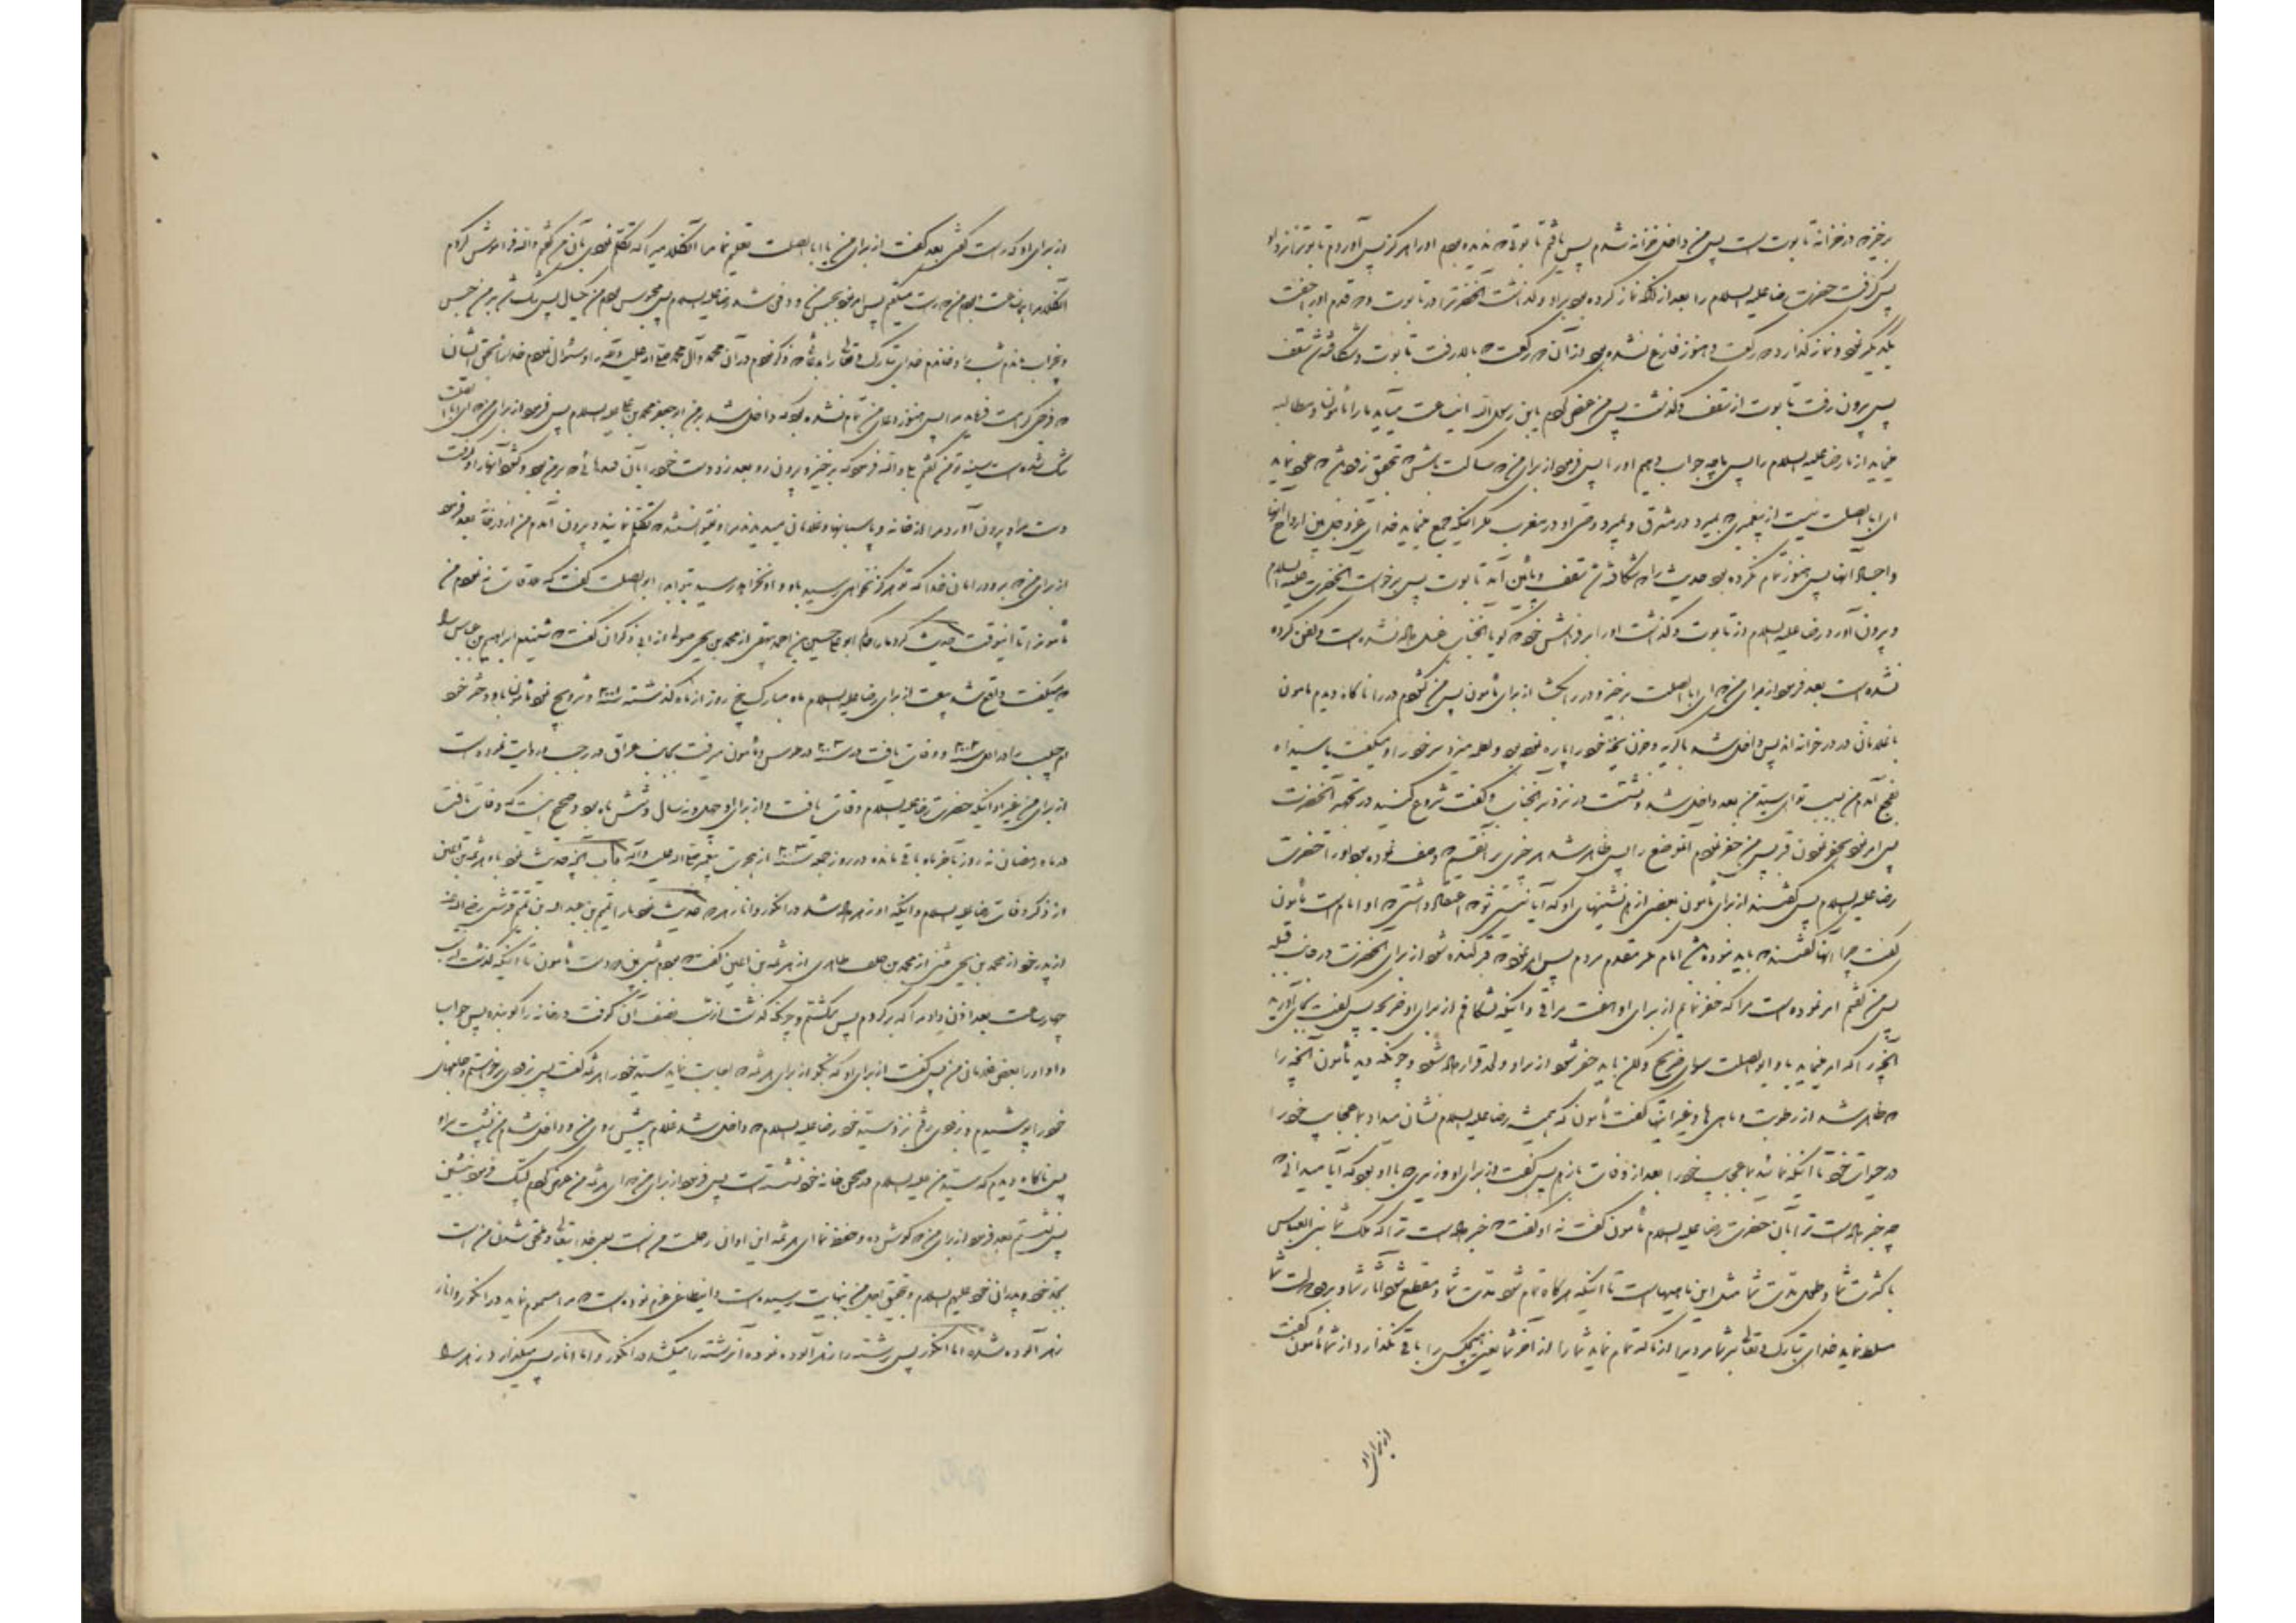 برخیز که در خزانه تابوت است پس من داخل خزانه شدم پس یافتم تابوتی که ندیده بودم او را هرگز پس آوردم تابوت را نزد او
پس گرفت حضرت رضا علیه السلام را بعد از آنکه نماز کرده بود بر او و گذاشت آنحضرت را در تابوت و دو قدم او را جفت
یکدیگر نمود و نماز گذارد دو رکعت و هنوز فارغ نشده بود از آن دو رکعت که بالا رفت تابوت و شکافته شد سقف
پس بیرون رفت تابوت از سقف و گذشت پس من عرض کردم یابن رسول الله اینساعت میآید ما را مأمون و مطالبه
مینماید از ما رضا علیه السلام را پس ما چه جواب دهیم او را پس فرمود از برای من که ساکت باش که بتحقیق زود باشد که عود نماید
ای ابا الصلت نیست از پیغمبری که بمیرد در مشرق و بمیرد وصی او در مغرب مگر اینکه جمع مینماید خدای عزوجل بین ارواح آنها
و اجساد آنها پس هنوز تمام نکرده بود حدیث را که شکافته شد سقف و پائین آمد تابوت پس برخواست آنحضرت علیه السلام
و بیرون آورد رضا علیه السلام را از تابوت و گذاشت او را بر فراش خود که گویا آنجناب غسل داده نشده است و کفن کرده
نشده است بعد فرمود از برای من که ای ابا الصلت برخیز و در را بگشا از برای مأمون پس من گشودم در را ناگاه دیدم مامون
با غلامان در در خانه اند پس داخل شد با گریه و حزن یخه خود را پاره نموده بود و لطمه میزد سر خود را و میگفت یا سیداه
فجع آمدم من بسبب تو ای سید من بعد داخل شد و نشست در نزد سر آنجناب و گفت شروع کنید در تجهیز آنحضرت
پس امر نمود بحفر نمودن قبر پس من حفر نمودم آنموضع را پس ظاهر شد هر چیزی بر آنقسم که وصف نموده بود او را حضرت
رضا علیه السلام پس گفتند از برای مأمون بعضی از همنشینهای او که آیا نیستی تو که اعتقاد داشتی که او امام است مأمون
گفت چرا آنها گفتند که باید نبوده باشد امام مگر مقدم مردم پس امر نمود که قبر کنده شود از برای آنحضرت در جانب قبله
پس من گفتم امر نموده است مرا که حفر نمایم از برای او هفت مراقی و اینکه بشکافم از برای او ضریحه پس گفت بجای آورید
آنچه را که امر مینماید باو ابوالصلت سوای ضریح ولکن باید حفر شود از برای او و لحد قرار داده شود و چونکه دید مأمون آنچه را
که ظاهر شد از رطوبت و ماهی ها و غیر اینها گفت مأمون که همیشه رضا علیه السلام نشان میداد بما عجایب خود را
در حیوة خود تا آنکه نمایاند بما عجایب خود را بعد از وفات باز هم پس گفت از برای او وزیری که با او بود که آیا میدانی که
چه خبر داده است ترا بآن حضرت رضا علیه السلام مأمون گفت نه او گفت که خبر داده است ترا که ملک شما بنی العباس
با کثرت شما و طول مدت شما مثل این ماهیها است تا اینکه هرگاه تمام شود مدت شما و منقطع شود آثار شما و برود دولت شما
مسلط نماید خدای تبارک و تعالی بر شما مردیرا از ما که تمام نماید شما را از آخر شما یعنی هیچکس را باقی نگذارد از شما مأمون گفت
از برای او
از برای او که راست گفتی بعد گفت از برای من یا ابا الصلت تعلیم نما مرا آنکلامیرا که تکلم نمودی بآن من گفتم والله فراموش کردم
آنکلام را همانساعت و بودم من که راست میگفتم پس امر نمود بحبس من و دفن شد رضا علیه السلام پس محبوس بودم من یکسال پس تنگ شد بر من حبس
و بیخواب ماندم شب را و خواندم خدای تبارک و تعالی را بدعائی که ذکر نمودم در آن محمد و آل محمد صلی الله علیه و آله را و سئوال نمودم خدا را بحق ایشان
که فرجی کرامت فرماید مرا پس هنوز دعای من تمام نشده بود که داخل شد بر من ابو جعفر محمد بن علی علیه السلام پس فرمود از برای من که ای ابا الصلت
تنگ شده است سینه تو من گفتم بلی والله فرمود که برخیز و بیرون رو بعد زد دست خود را بآن قیدهائی که بر من بود و گشود آنها را و گرفت
دست مرا و بیرون آورد مرا از خانه و پاسبانها و غلامان میدیدند مرا و نتوانستند که تکلم نمایند و بیرون آمدم من از در خانه بعد فرمود
از برای من که برو در امان خدا که تو هرگز نخواهی رسید باو و او نخواهد رسید بتو ابدا ابوالصلت گفت که ملاقات ننمودم من
مأمون را تا اینوقت حدیث کرد ما را حاکم ابو علی حسین بن احمد بیهقی از محمد بن یحیی صولی از ابی ذکوان گفت که شنیدم ابراهیم بن عباس را
که میگفت واقع شد بیعت از برای رضا علیه السلام ماه مبارک پنج روز از ماه گذشته سنه ٢٠١ و تزویج نمود مأمون باو دختر خود
ام حبیب را در اول سنه ٢٠٢ و وفات یافت در سنه ٢٠٣ در طوس و مأمون میرفت بجانب عراق در رجب و روایت نموده است
از برای من غیر او اینکه حضرت رضا علیه السلام وفات یافت و از برای او چهل و نه سال و شش ماه بود و صحیح اینست که وفات یافت
در ماه رمضان نه روز بآخر ماه باقی مانده در روز جمعه سنه ٢٠٣ از هجرت پیغمبر صلی الله علیه و آله باب آنچه حدیث نمود باو هرثمة بن اعین
از ذکر وفات رضا علیه السلام و اینکه او زهر داده شد در انگور و انار هر دو حدیث نمود ما را تمیم بن عبدالله بن تمیم قرشی رضی الله عنه
از پدر خود از محمد بن یحیی از محمد بن خلف طاهری از هرثمة بن اعین گفت که بودم شبی پیش روی مأمون تا اینکه گذشت از شب
چهار ساعت بعد اذن داد مرا که برگردم پس برگشتم و چونکه گذشت از شب نصف آن کوفت در خانه را کوبنده پس جواب
داد او را بعض غلامان من پس گفت از برای او که بگو از برای هرثمه که اجابت نماید سید خود را هرثمه گفت پس بزودی برخواستم و جامهای
خود را پوشیدم و بزودی رفتم نزد سید خود رضا علیه السلام که داخل شد غلام پیش روی من و داخل شدم من پشت سر او
پس ناگاه دیدم که سید من علیه السلام در صحن خانه خود نشسته است پس فرمود از برای من که ای هرثمه من عرض کردم لبیک فرمود بنشین
پس نشستم بعد فرمود از برای من که گوش ده و حفظ نما ای هرثمه این اوان رحلت من است بسوی خدا یتعالی و ملحق شدن من است
بجد خود و پدران خود علیهم السلام و بتحقیق اجل من بنهایت رسیده است و اینطاغی عزم نموده است که مرا مسموم نماید در انگور و انار
زهر آلوده شده اما انگور پس رشته را زهر آلوده نموده آنرشته را میکشد در انگور و اما انار پس میگذارد زهر را